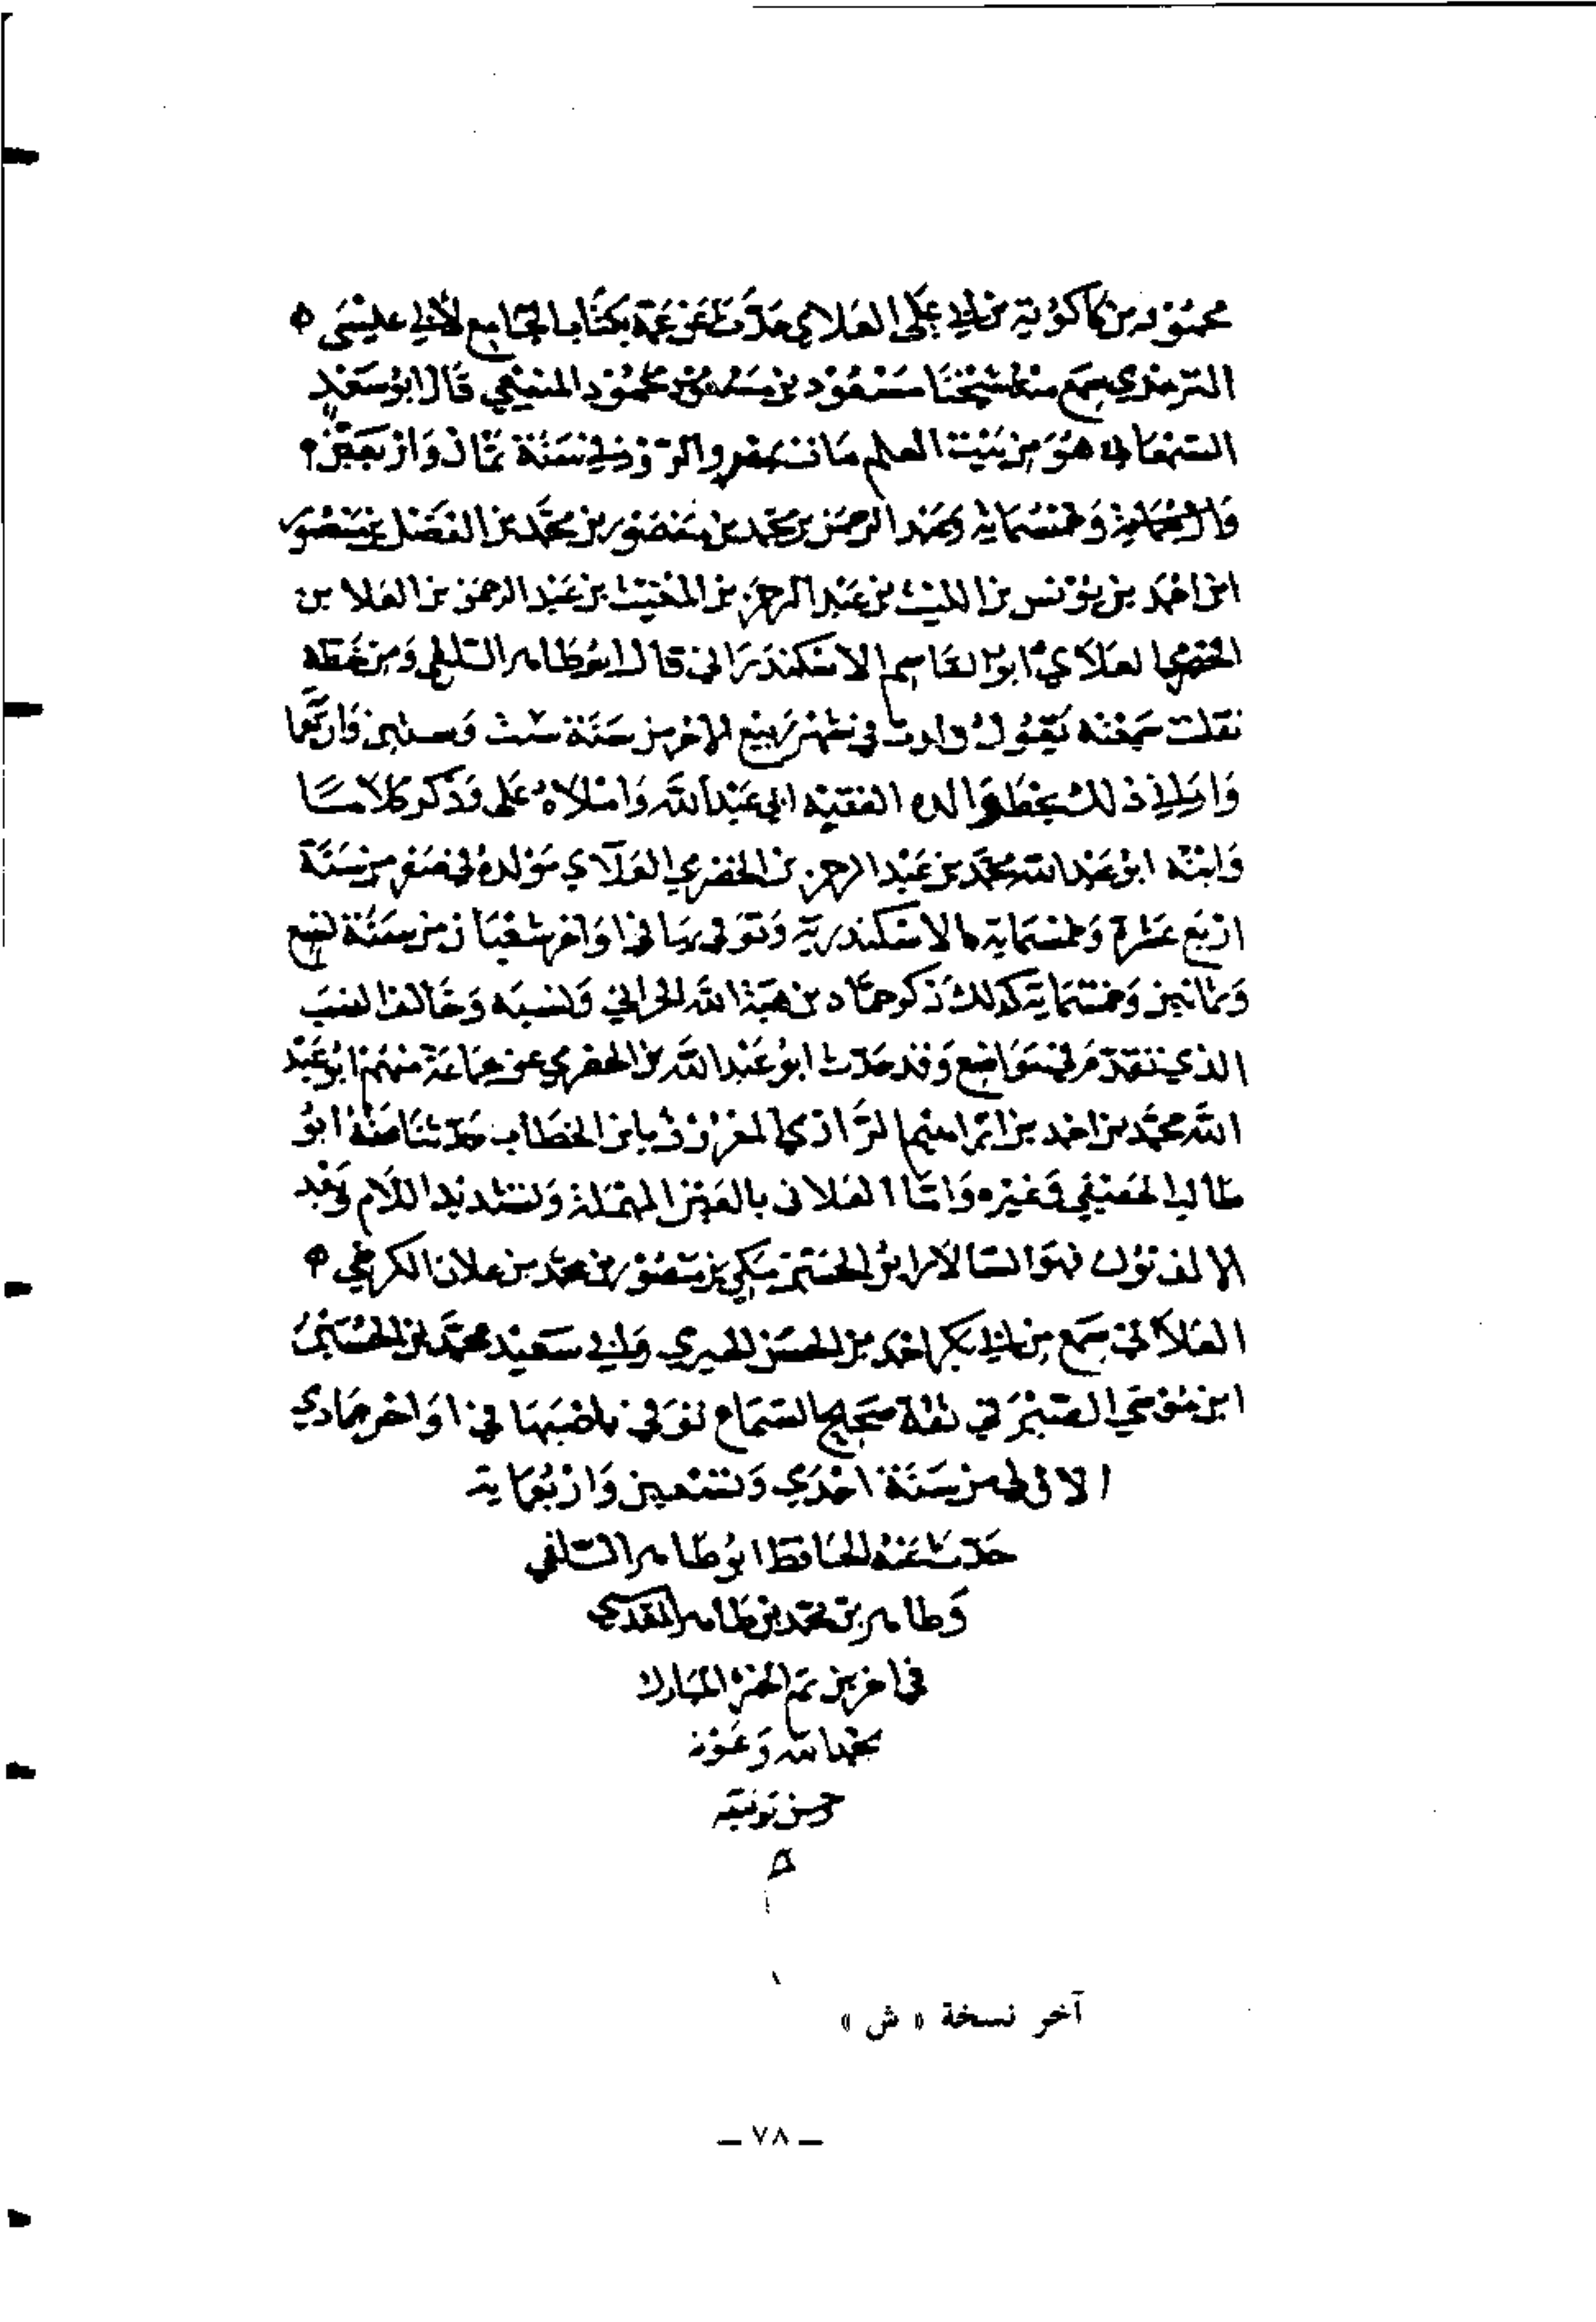 محمود بن كاكويه بن ابي علي العلاي حدث عن عمه بكتاب الجامع لابي عيسى
الترمذي سمع منه شيخنا مسعود بن محمود المنيعي قال ابو سعد
السمعاني هو من بيت العلم مات بمرو الروذ في سنة ثمان واربعين
وخمسماية وعبد الرحمن بن محمد بن منصور بن محمد بن الفضل بن منصور
ابن احمد بن يونس بن الليث بن عبد الرحمن بن المغيث بن عبد الرحمن بن العلا بن
الحضرمي العلاي ابو القاسم الاسكندراني قال ابو طاهر السلفي ومن خطه
نقلت سمعته يقول ولدت في شهر ربيع الاخر من سنة ست وستين واربعما
واراني ذلك بخط والده الفقيه ابي عبد الله واملاه علي وذكر كلامًا
وابنه ابو عبد الله محمد بن عبد الرحمن بن الحضرمي العلآي مولده في صفر من سنة
اربع عشرة وخمسماية بالاسكندرية وتوفي بها في اواخر شعبان من سنة تسع
وثمانين وخمسماية كذلك ذكر حماد بن هبة الله الحراني ونسبه وخالف النسب
الذي تقدم في مواضع وقد حدث ابو عبد الله بن الحضرمي عن جماعة منهم ابو عبد
الله محمد بن احمد بن ابراهيم الرازي المعروف بابن الخطاب حدثنا عنه ابو
طالب الحقيقي وغيره واما العلاني بالعين المهملة وتشديد اللام وبعد
الالف نون فهو السالار ابو الحسن مكي بن منصور بن محمد بن علان الكرجي
العلاني سمع من ابي بكر احمد بن الحسن الحيري وابي سعيد محمد بن
ابن موسي الصيرفي ثقة صحيح السماع توفي باصبهان في اواخر جمادي
الاولى من سنة احدي وتسعين واربعماية
حدث عنه الحافظ ابو طاهر السلفي
وطاهر بن محمد بن طاهر المقدسي
في اخرين تم الجزء المبارك
بحمد الله وعونه
وحسن توفيقه
آخر نسخة « ش »
— ٧٨ —